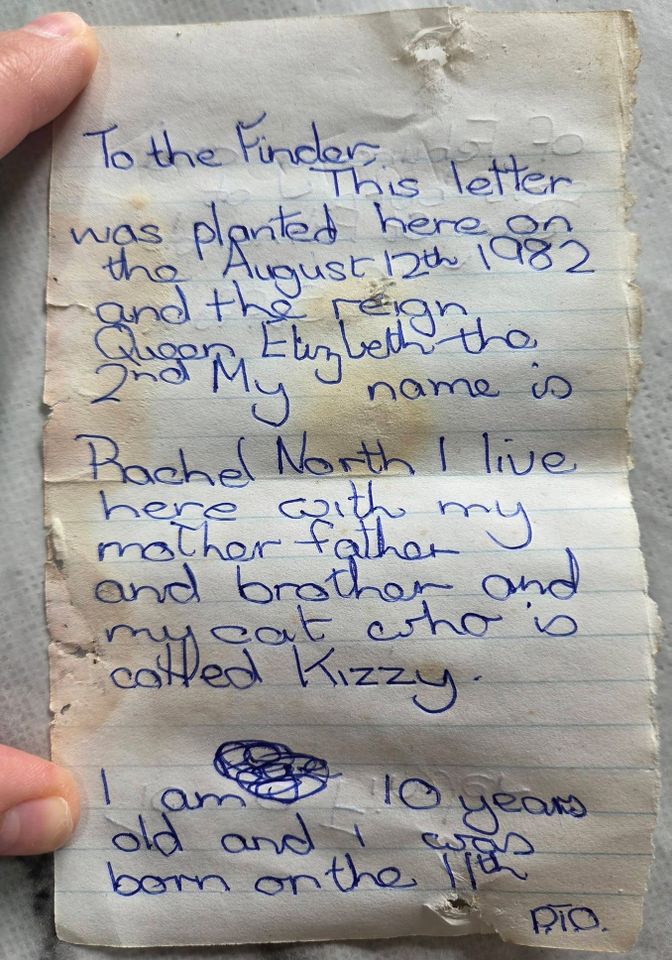 To the Finder,
This letter
was planted here on
the August 12th 1982
and the reign
Queen Elizbeth the
2nd My name is
Rachel North I live
here with my
mother father
and brother and
my cat who is
called Kizzy.
I am 10 years
old and I was
born on the 11th
P.T.O.